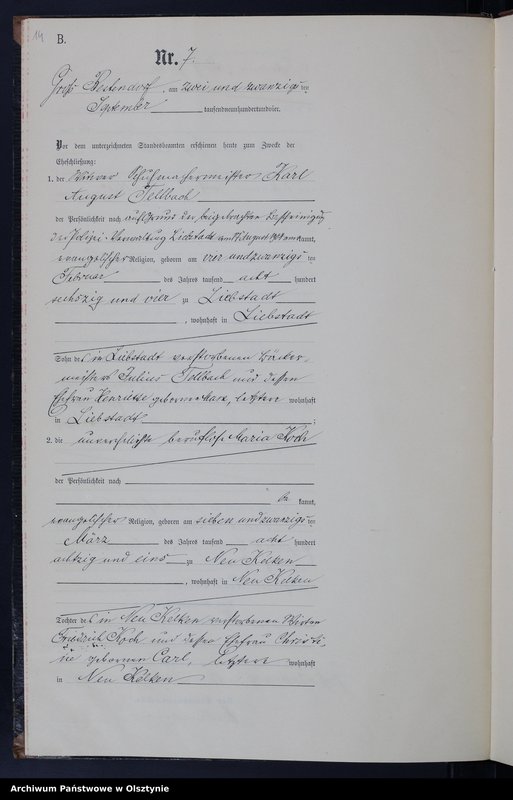 14
B.
Nr. 7.
Groß Bestendorf, am zwei und zwanzigs ten
September tausendneunhundertundvier.
Vor dem unterzeichneten Standesbeamten erschienen heute zum Zwecke der
Eheschließung:
1. der Witwer Schuhmachermeister Karl
August Tollbach
der Persönlichkeit nach auf Grund der beigebrachten Bescheinigung
der Polizei-Verwaltung Liebstadt am 17. August 1904 anerkannt,
evangelischer Religion, geboren am vier und zwanzigs ten
Februar des Jahres tausend acht hundert
sechszig und vier zu Liebstadt
, wohnhaft in Liebstadt
Sohn des in Liebstadt verstorbenen Bäcker-
meisters Julius Tollbach und dessen
Ehefrau geborene, letztere wohnhaft
in Liebstadt ;
2. die unverehelichte berufslose Maria Koch
der Persönlichkeit nach
be kannt,
evangelischer Religion, geboren am sieben und zwanzigs ten
März des Jahres tausend acht hundert
achtzig und eins zu Neu Kelken
, wohnhaft in Neu Kelken
Tochter des in Neu Kelken verstorbenen Wirten
Friedrich Koch und dessen Ehefrau Christi-
ne geborenen Carl, letztere wohnhaft
in Neu Kelken
Archiwum Państwowe w Olsztynie